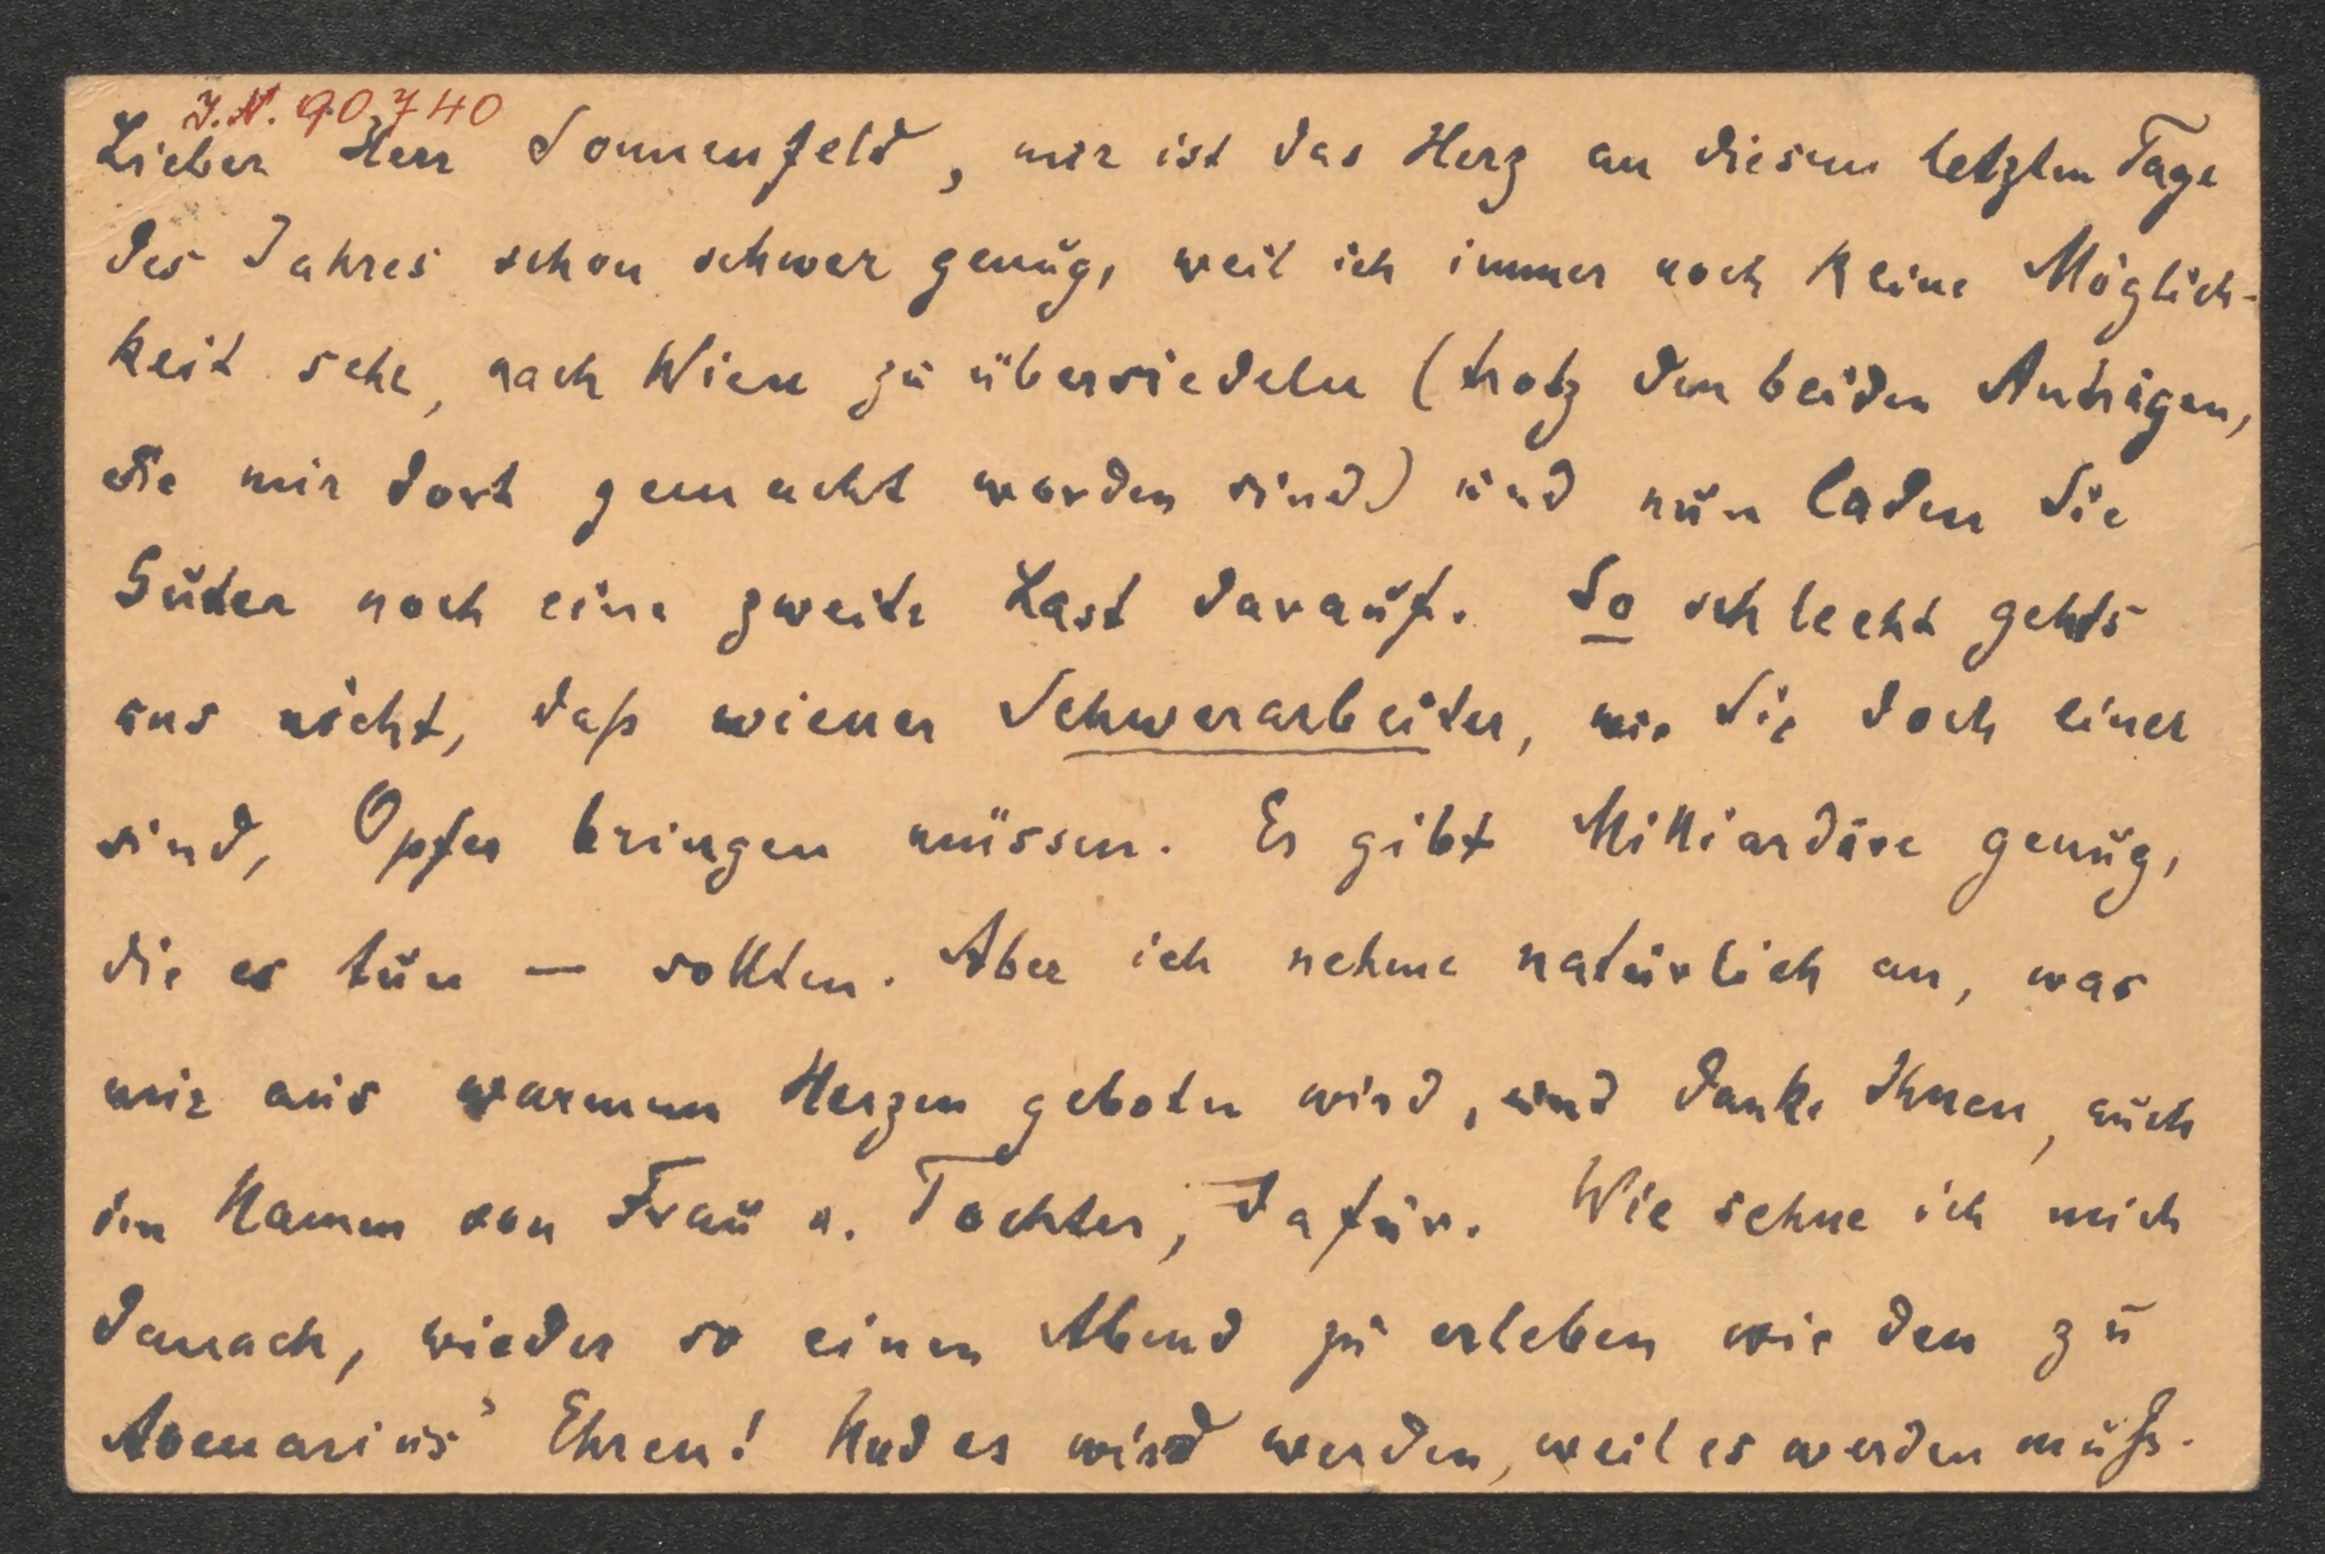 J.N. 90740
Lieber Herr Sonnenfeld, mir ist das Herz an diesem letzten Tage
des Jahres schon schwer genug, weil ich immer noch keine Möglich-
keit sehe, nach Wien zu übersiedeln (trotz den beiden Anträgen,
die mir dort gemacht worden sind) und nun laden Sie
Guter noch eine zweite Last darauf. So schlecht gehts
uns nicht, daß wiener Schwerarbeiter, wie Sie doch einer
sind, Opfer bringen müssen. Es gibt Milliardäre genug,
die es tun — sollten. Aber ich nehme natürlich an, was
mir aus warmem Herzen geboten wird, und danke Ihnen, auch
im Namen von Frau u. Tochter, dafür. Wie sehne ich mich
danach, wieder so einen Abend zu erleben wie den zu
Avenarius' Ehren! Und es wird werden, weil es werden muß.